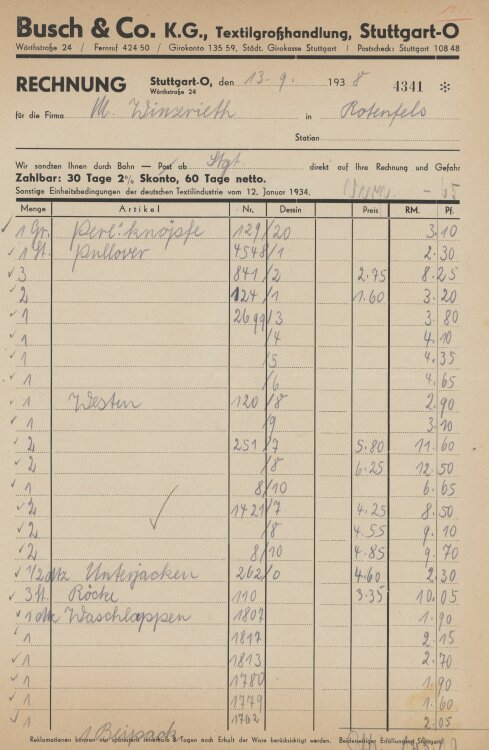 Busch & Co. K.G., Textilgroßhandlung, Stuttgart-O
Wörthstraße 24 / Fernruf 424 50 / Girokonto 135 59, Städt. Girokasse Stuttgart / Postscheck: Stuttgart 108 48
RECHNUNG Stuttgart-O, den 13. 9. 1938 4341 *
Wörthstraße 24
für die Firma M. in Rotenfels
Station
Wir sandten Ihnen durch Bahn — Post ab Stgt. direkt auf Ihre Rechnung und Gefahr
Zahlbar: 30 Tage 2% Skonto, 60 Tage netto.
Sonstige Einheitsbedingungen der deutschen Textilindustrie vom 12. Januar 1934. — 65
Menge Artikel Nr. Dessin Preis RM. Pf.
1 Gr. Perl.knöpfe 129/20 3.10
1 St. Pullover 4548/1 2.30
3 841/2 2.75 8.25
2 124/1 1.60 3.20
1 2699/3 3.80
1 /4 4.10
1 /5 4.35
1 /6 4.65
1 Westen 120/8 2.90
1 /9 3.10
2 251/7 5.80 11.60
2 /8 6.25 12.50
1 8/10 6.65
2 1421/7 4.25 8.50
2 /8 4.55 9.10
2 8/10 4.85 9.70
1/2 dtz Unterjacken 262/0 4.60 2.30
3 St. Röcke 110 3.35 10.05
1 dtz Waschlappen 1807 1.90
1 1817 2.15
1 1813 2.70
1 1780 1.90
1 1779 1.60
1 1762 2.05
Reklamationen können nur spätestens innerhalb 8 Tagen nach Erhalt der Ware berücksichtigt werden. Beiderseitiger Erfüllungsort Stuttgart
1 Beipack